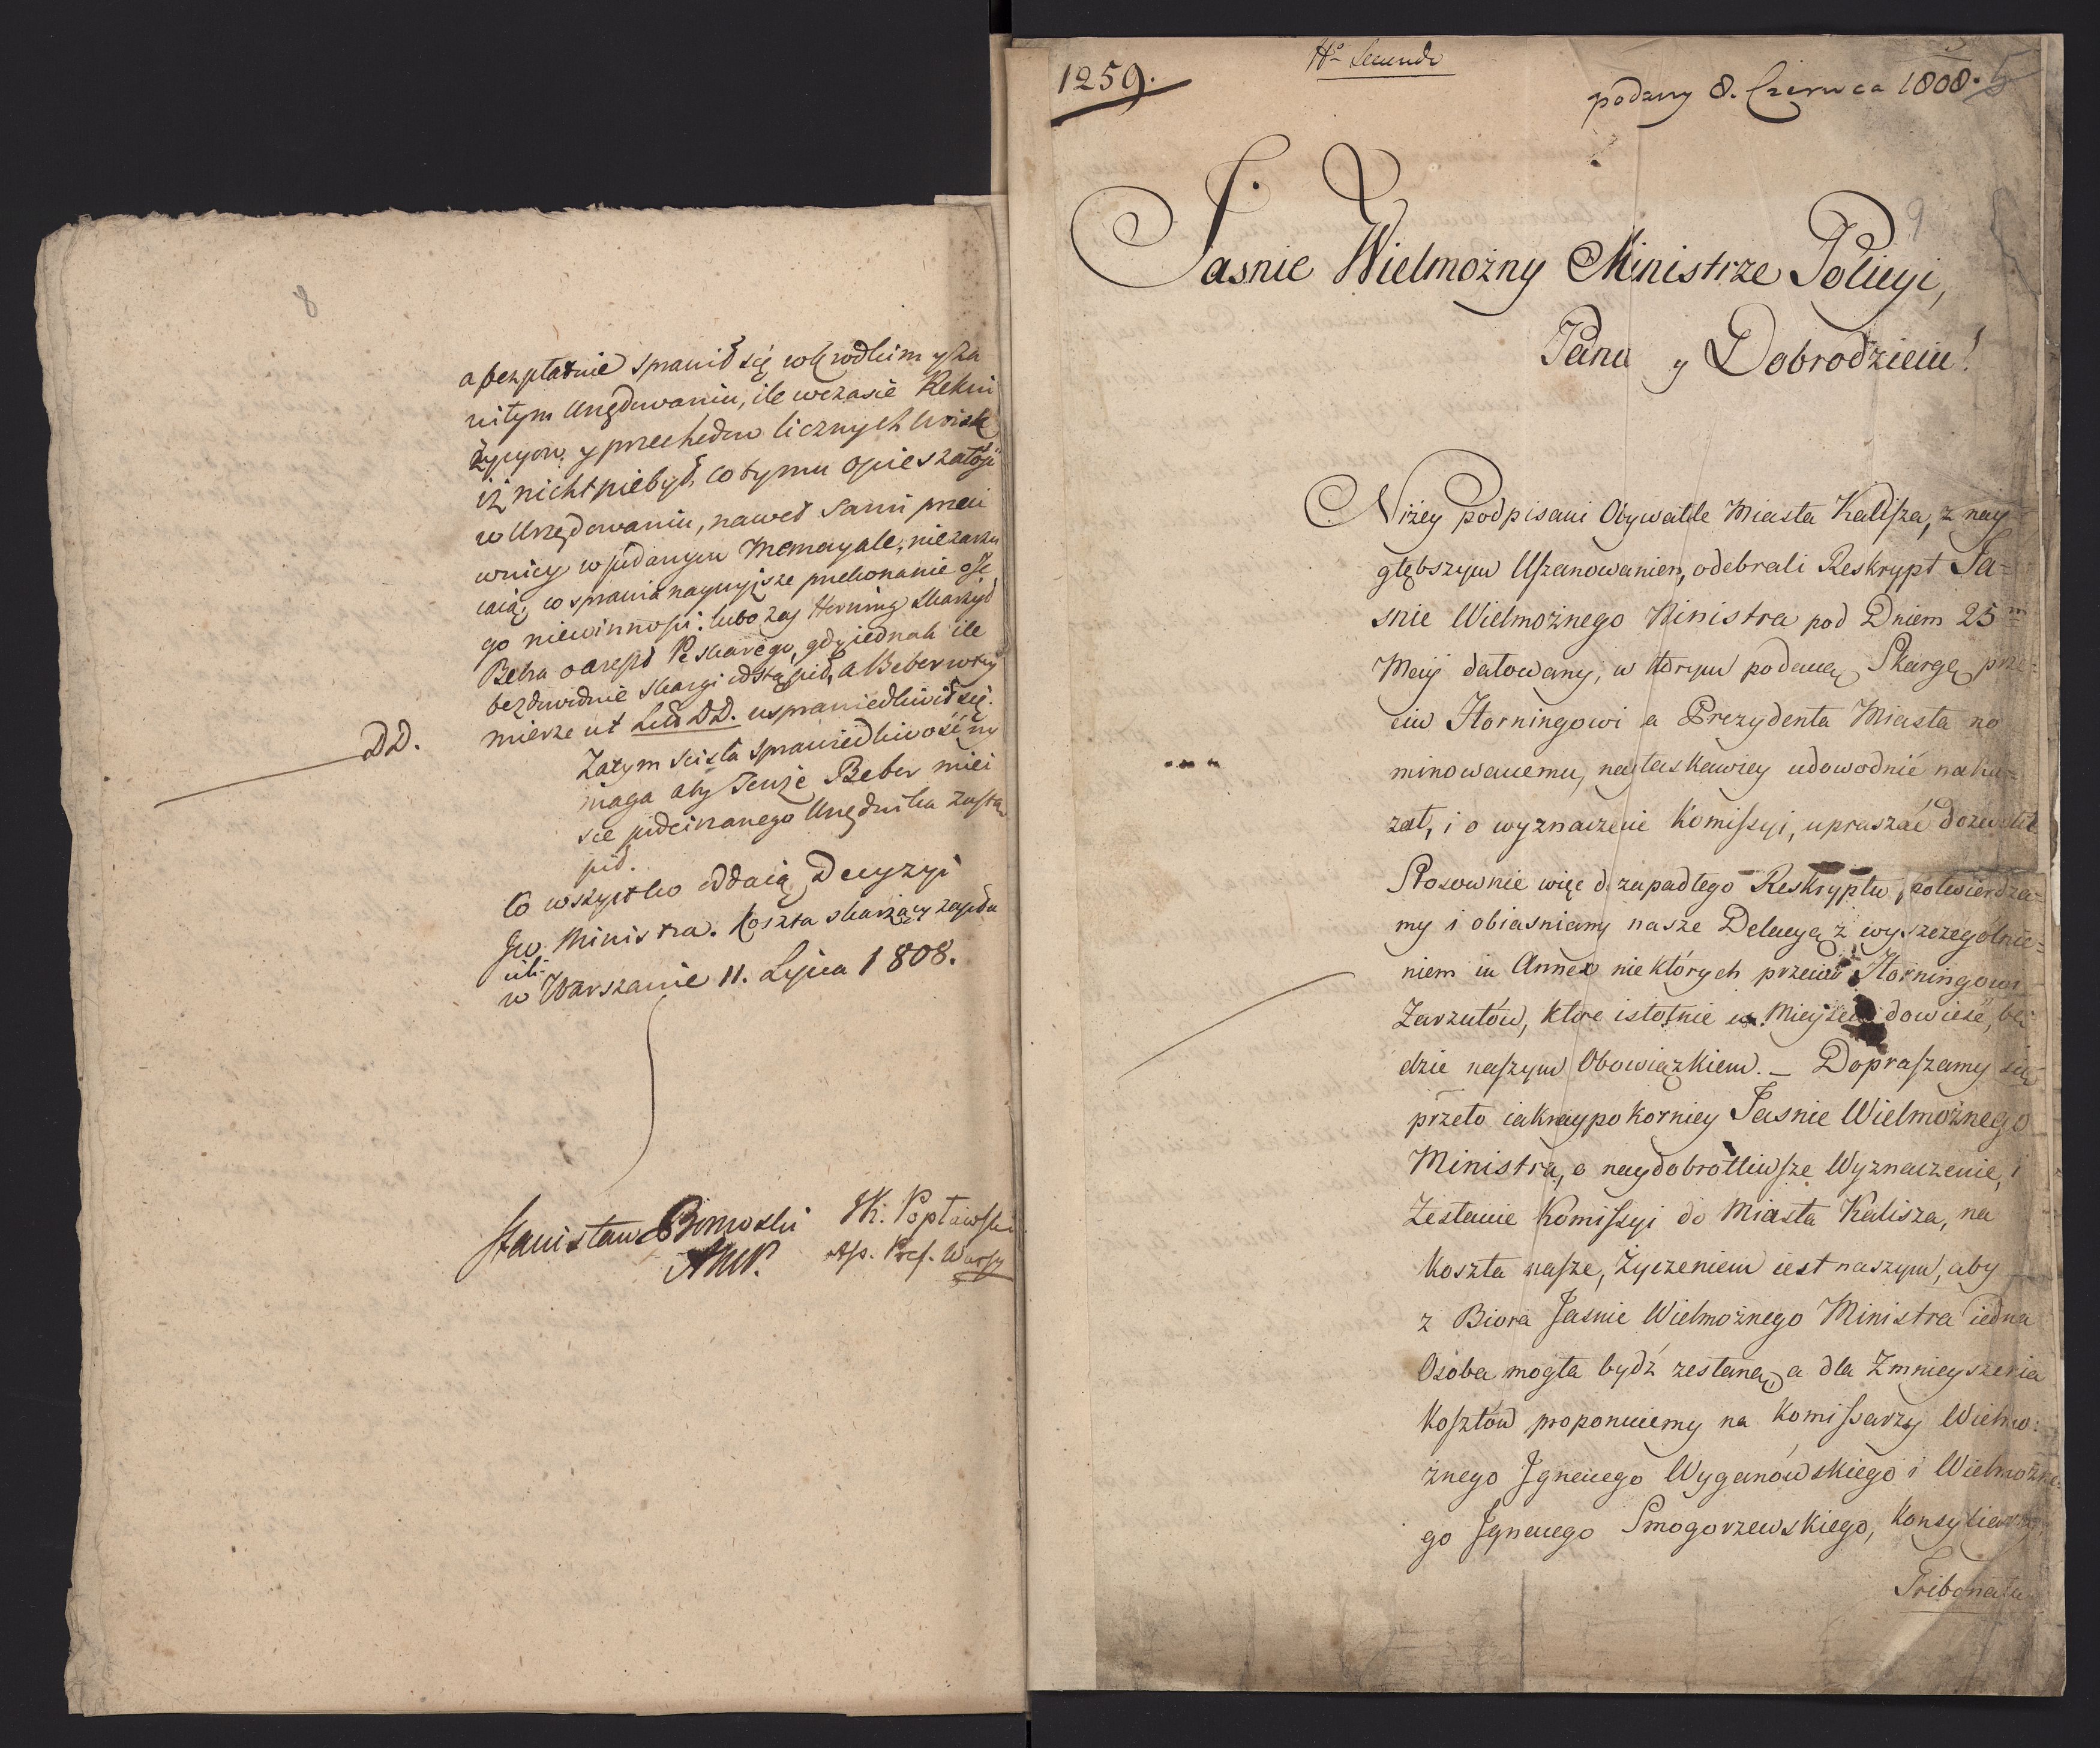 8
a bezpłatnie sprawił się w krótkim y za
witym Urzędowaniu, ile w czasie Rekwi
zycyow. y przechodow licznych woisk
iż nicht niebył, co by mu opieszałość
w Urzędowaniu, nawet sami przeci
wnicy w podanym Memoryale, niezarzu
caią, co sprawia naypewnieysze przekonanie o Je
go niewinności. lubo zaś Horning skarżył
Bebra o areszt Pe skarego, gdy iednak ile
bezdowodnie skargi odstąpił, a Beber w tey
mierze ut Lit DD. usprawiedliwił się.
DD.
Zatym scisła sprawiedliwość wy
maga aby Tenże Beber miei
sce podcinanego Urzędnika zastą
pił.
Co wszystko oddaią Decyzyi
Jw. Ministra. Koszta skarżący zapła
cili.
w Warszawie 11. Lipca 1808.
Stanisław Bonoski K. Popławski
Ass. Pref. Warsz
1259.
Secundo
podany 8. Czerwca 1808.
5
9
Jasnie Wielmożny Ministrze Policyi,
Panu y Dobrodzieiu!
Niżey podpisani Obywatele Miasta Kalisza, z nay
głębszym Uszanowaniem, odebrali Reskrypt Ja=
snie Wielmożnego Ministra pod Dniem 25m
Maij datowany, w którym podaną Skargę prze=
ciw Horningowi a Prezydenta Miasta no
minowanemu, nayłaskawiey udowodnić naka=
zał, i o wyznaczenie Komissyi, upraszać dozwolił
Stosownie więc d. zapadłego Reskryptu, potwierdza=
my i obiasniamy nasze Delacyą z wyszczególnie=
niem in Annex niektórych przeciw Horningowi
Zarzutów, które istotnie w Mieyscu dowieść, bę
dzie naszym Obowiązkiem. – Dopraszamy się
przeto iaknaypokorniey Jasnie Wielmożnego
Ministra, o naydobrotliwsze Wyznaczenie, i
Zesłanie Komissyi do Miasta Kalisza, na
Koszta nasze, Życzeniem iest naszym, aby
z Biora Jasnie Wielmożnego Ministra iedna
Osoba mogła bydź zesłana, a dla Zmnieyszenia
Kosztów proponuiemy na Komissarzy Wielmo=
żnego Ignacego Wyganowskiego i Wielmożne=
go Ignacego Smogorzewskiego, Konsyliarzy
Tribunału